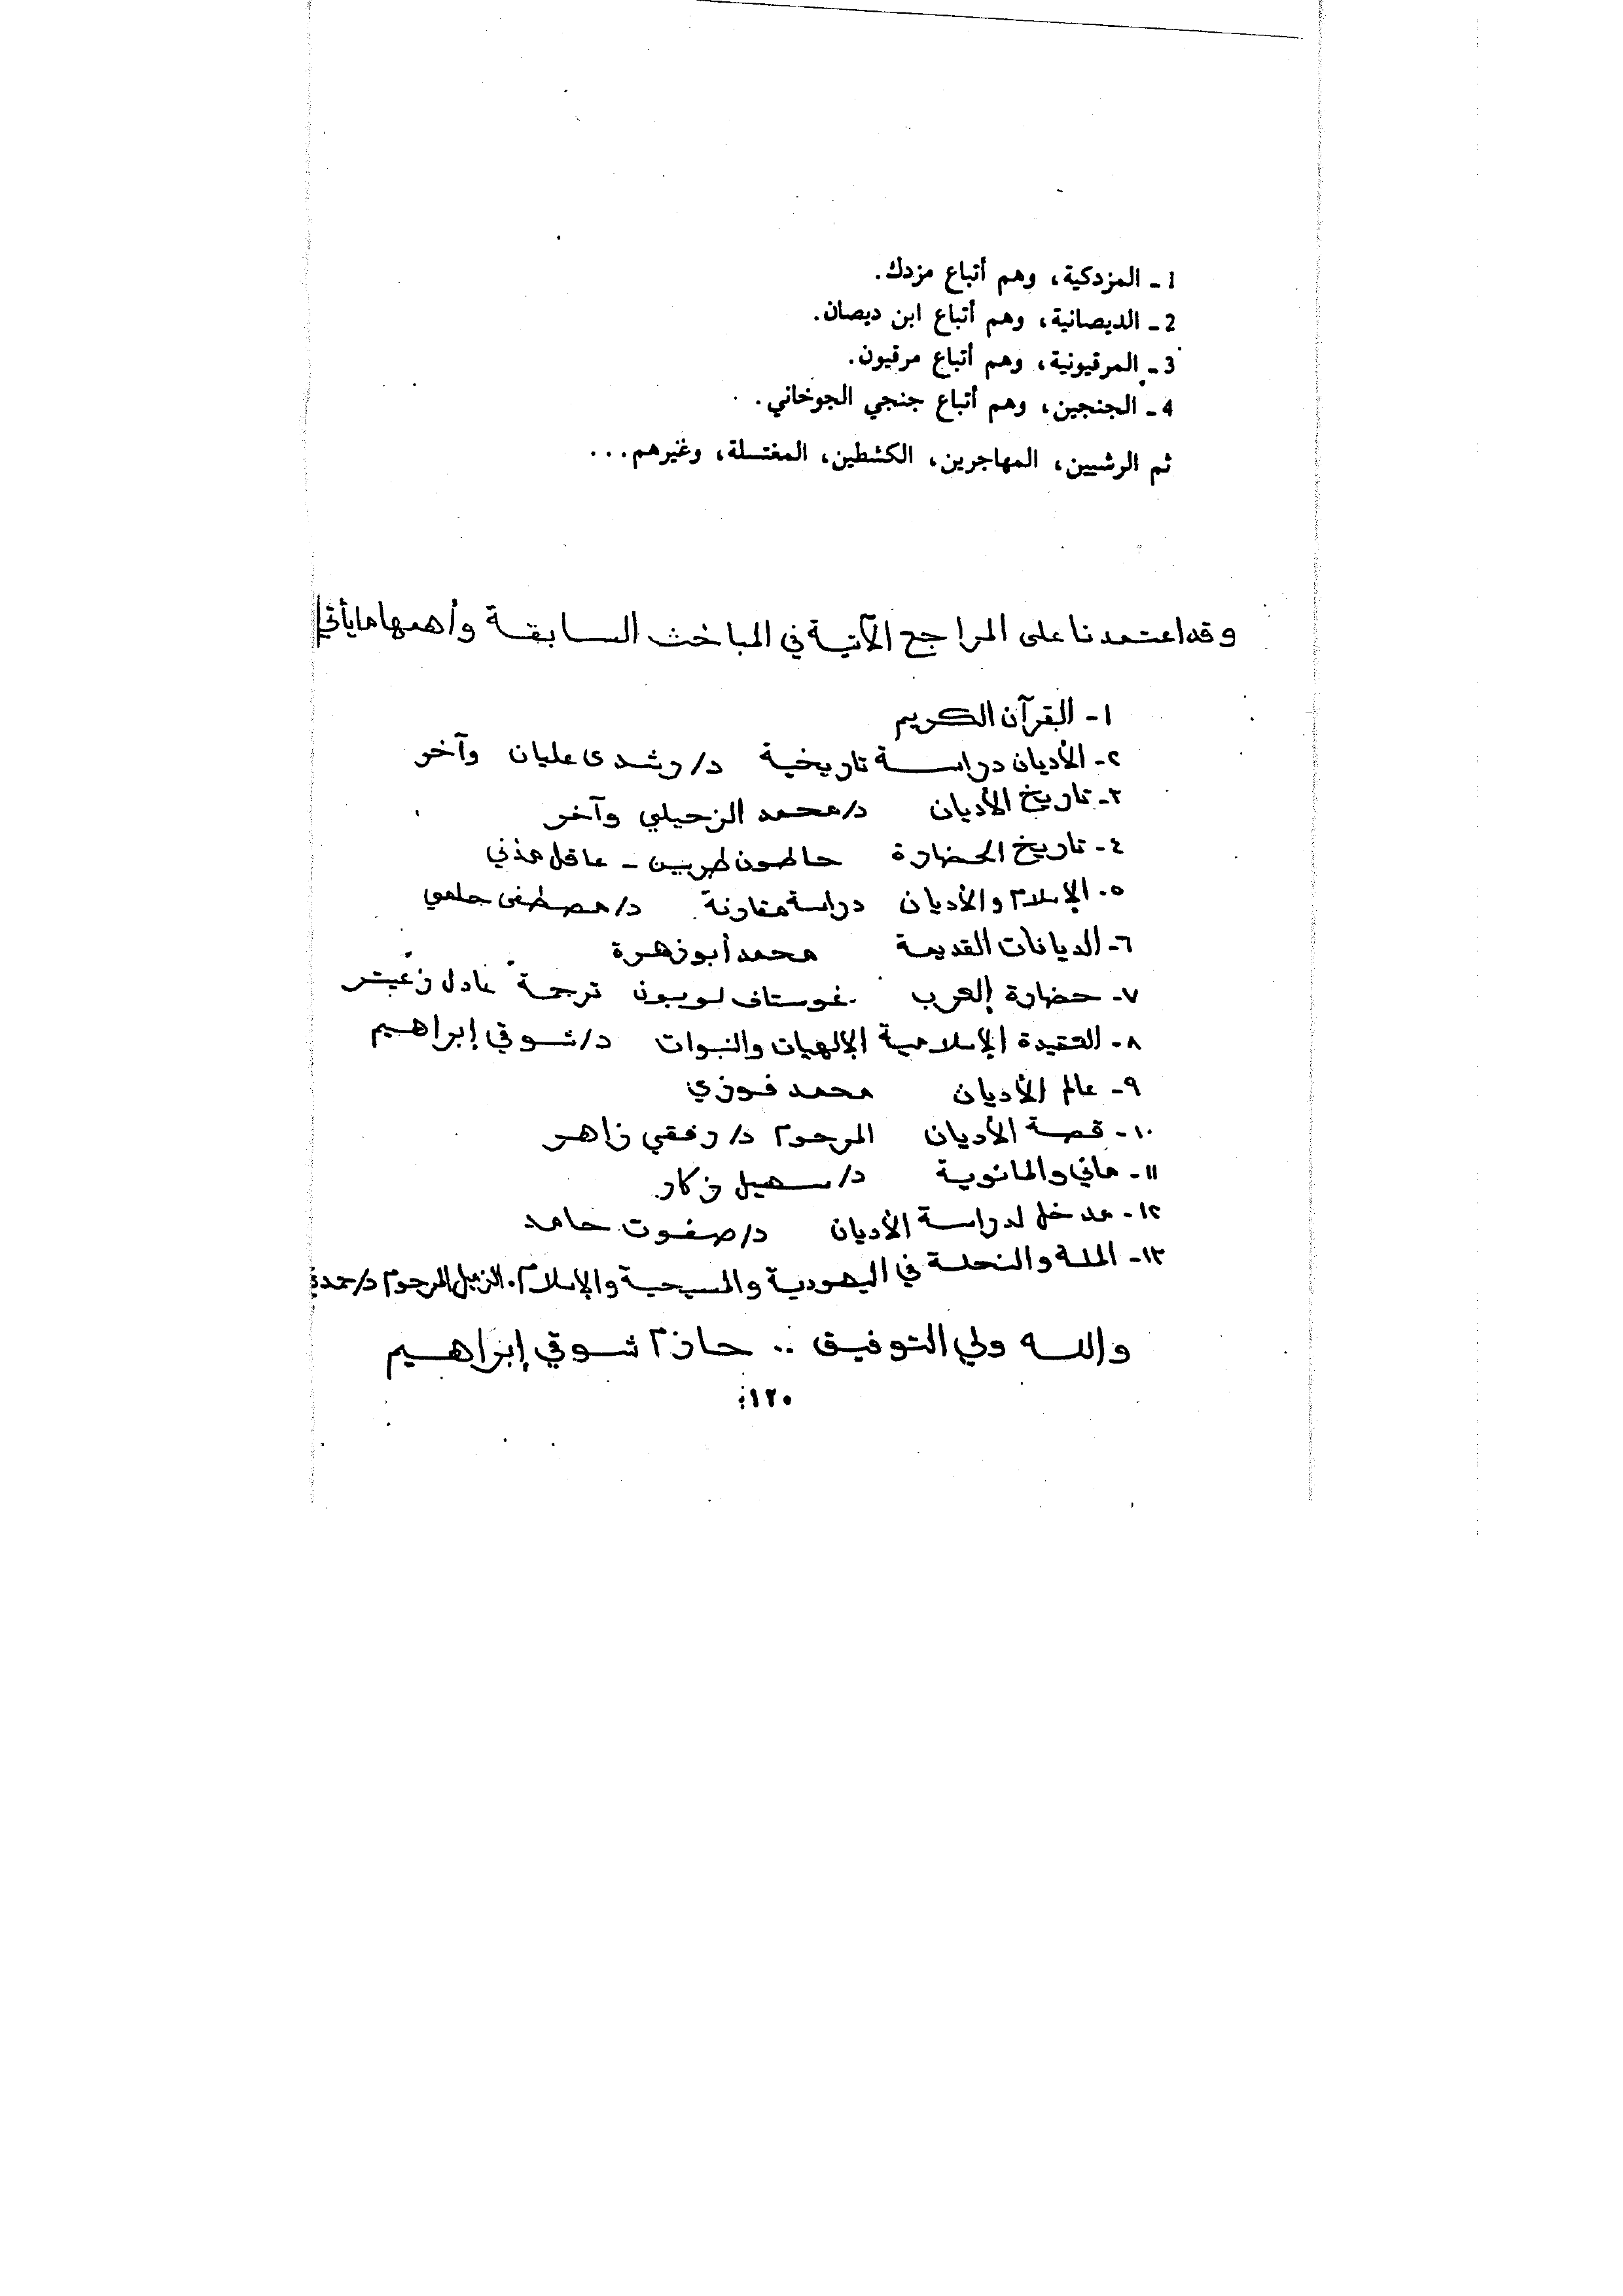 1 ـ المزدكية، وهم أتباع مزدك.
2 ـ الديصانية، وهم أتباع ابن ديصان.
3 ـ المرقيونية، وهم أتباع مرقيون.
4 ـ الجنجين، وهم أتباع جنجي الجوخاني.
ثم الرشيين، المهاجرين، الكشطين، المغتسلة، وغيرهم...
وقد اعتمدنا على المراجع الآتية في المباحث السابقة وأهمها ما يأتي
١- القرآن الكريم
٢- الأديان دراسة تاريخية د/ رشدى عليان وآخر
٣- تاريخ الأديان د/ محمد الزحيلي وآخر
٤- تاريخ الحضارة حاطون طربين - عاقل مدني
٥- الإسلام والأديان دراسة مقارنة د/ مصطفى حلمي
٦- الديانات القديمة محمد أبو زهرة
٧- حضارة العرب غوستاف لوبون ترجمة عادل زعيتر
٨- العقيدة الإسلامية الإلهيات والنبوات د/ شوقي إبراهيم
٩- عالم الأديان محمد فوزي
١٠- قصة الأديان المرحوم د/ رفقي زاهر
١١- ماني والمانوية د/ سهيل زكار
١٢- مدخل لدراسة الأديان د/ صفوت حامد
١٣- الملة والنحلة في اليهودية والمسيحية والإسلام. الزميل المرحوم د/ حمدي
والله ولي التوفيق .. حازم شوقي إبراهيم
١٢٠